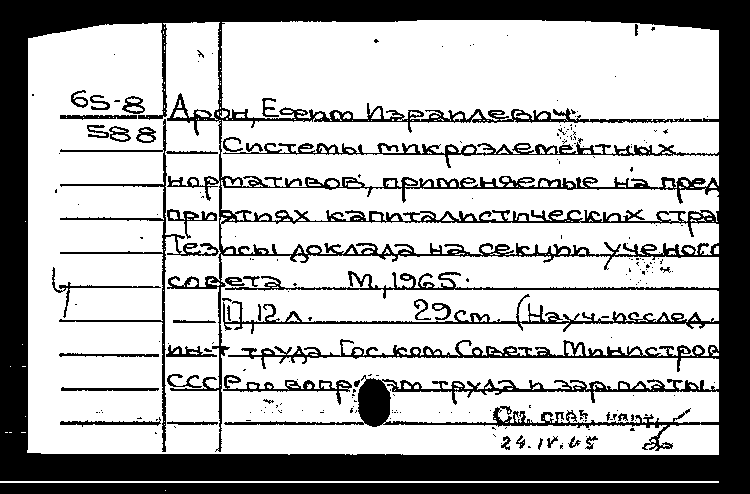 65-8 Арон, Ефим Израилевич.
588 Системы микроэлементных
нормативов, применяемые на пред
приятиях капиталистических стра
Тезисы доклада на секции ученого
совета. М., 1965.
[1], 12 л. 29 см. (Науч.-исслед.
ин-т труда. Гос. ком. Совета Министров
СССР по вопросам труда и зар. платы.
См. след. карт.
24.IV.65